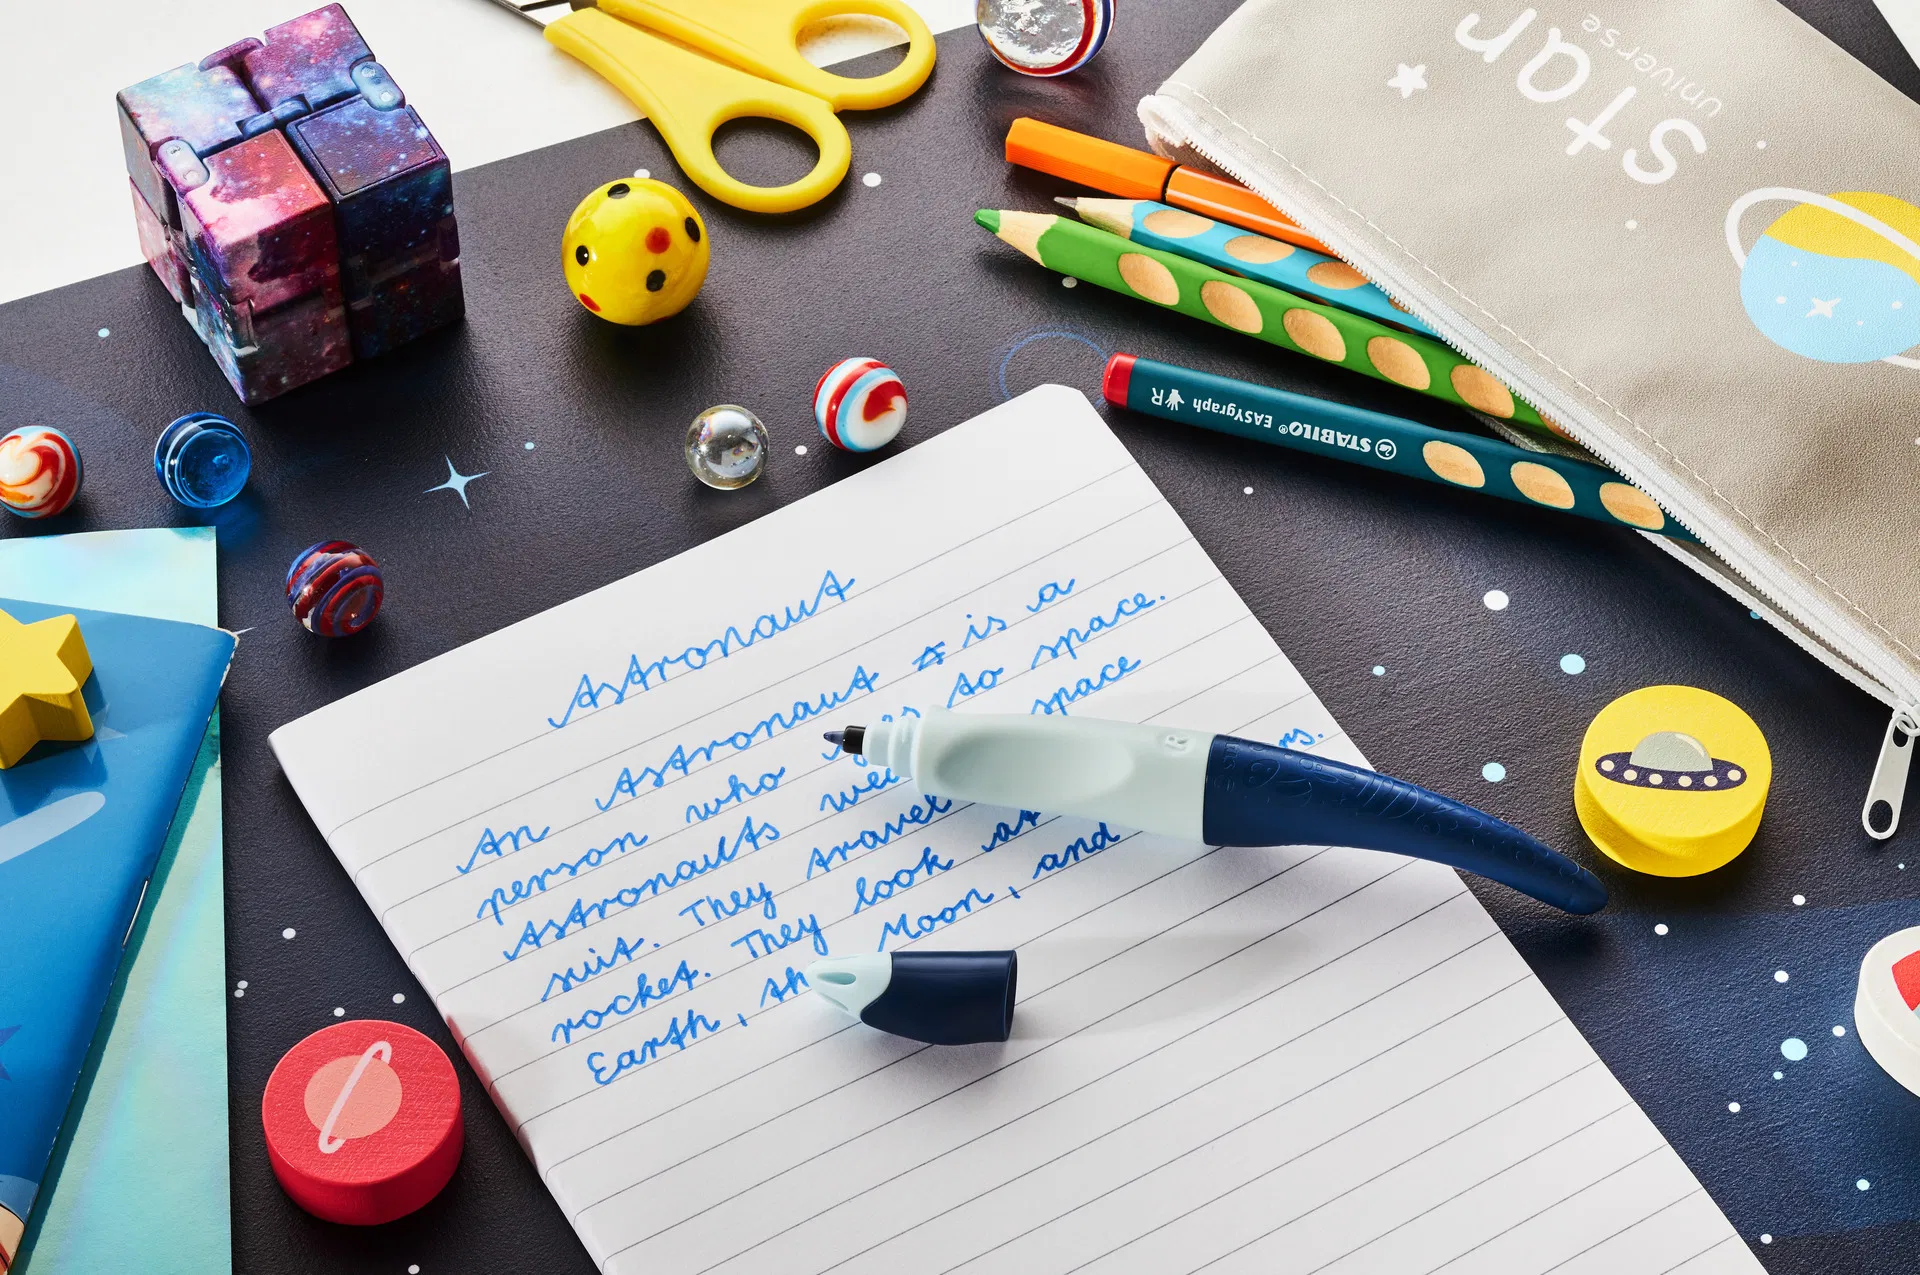 star
universe
STABILO® EASYgraph R
R
Astronaut
An Astronaut is a
person who to space.
Astronauts space
suit. They travel rs.
rocket. They look at
Earth, th Moon, and